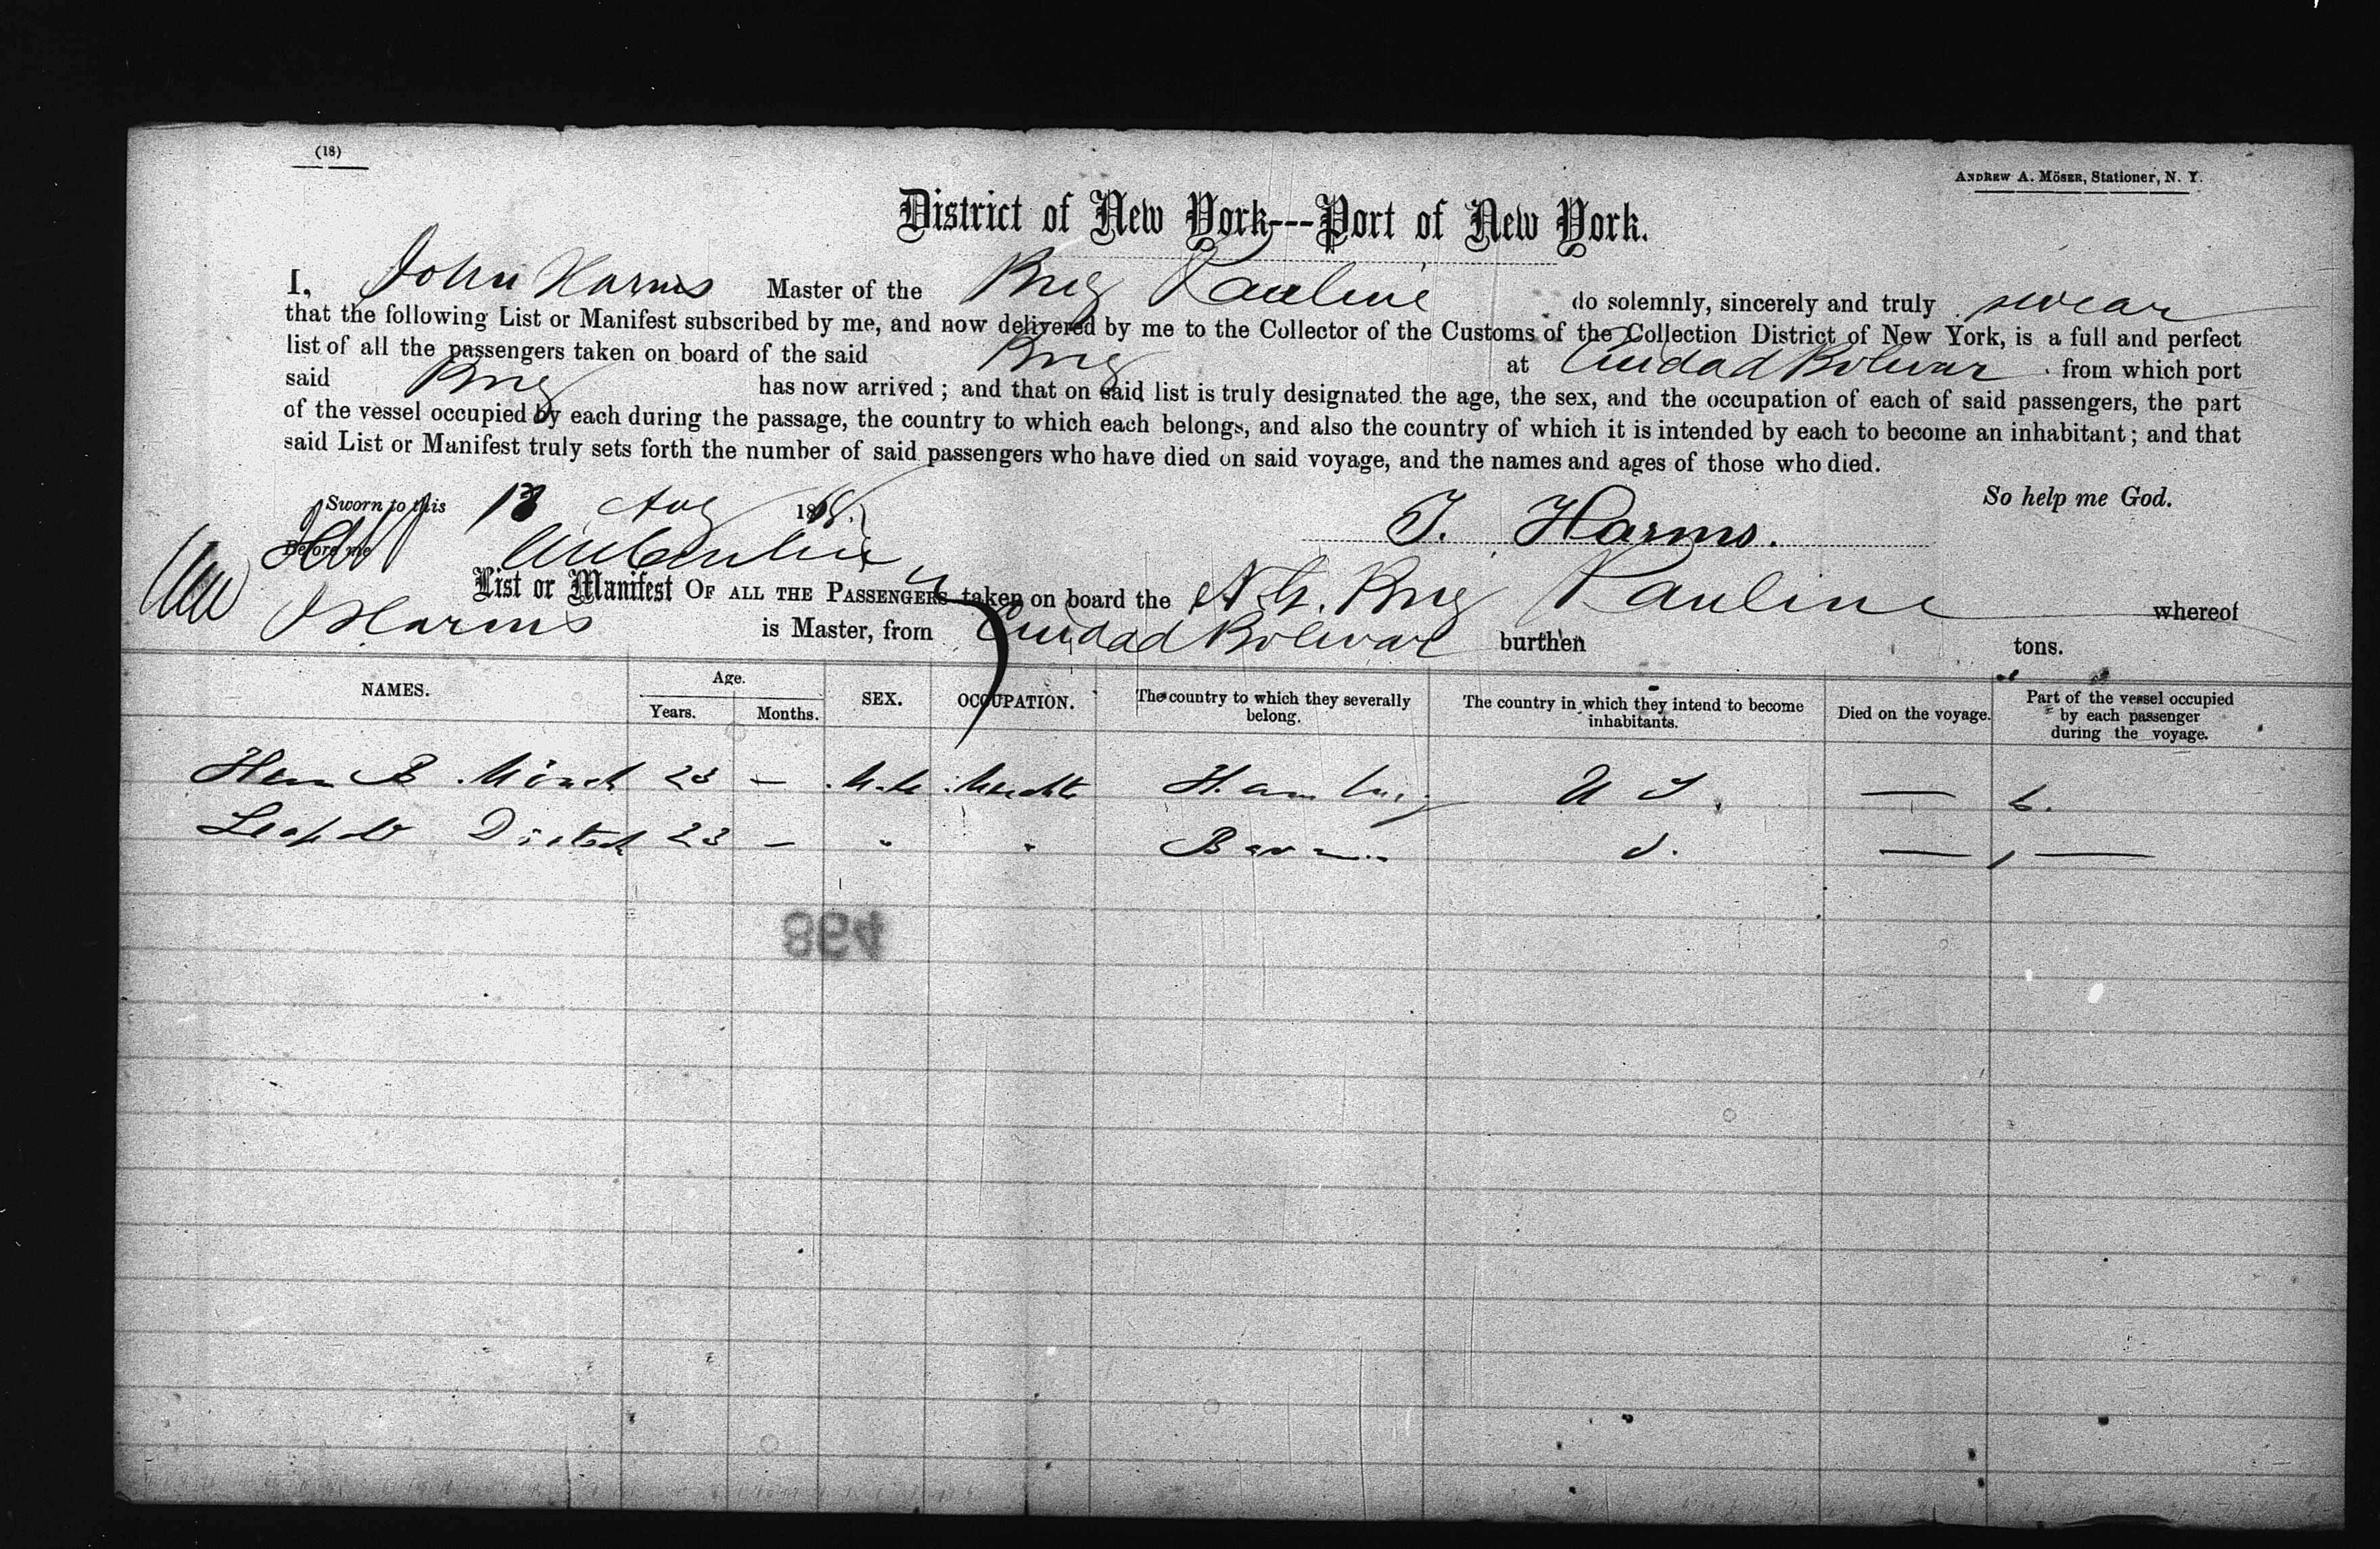 (18)
ANDREW A. MÖSER, Stationer, N. Y.
District of New York---Port of New York.
I, John Harms Master of the Brig Pauline do solemnly, sincerely and truly swear
that the following List or Manifest subscribed by me, and now delivered by me to the Collector of the Customs of the Collection District of New York, is a full and perfect
list of all the passengers taken on board of the said Brig at Ciudad Bolivar from which port
said Brig has now arrived; and that on said list is truly designated the age, the sex, and the occupation of each of said passengers, the part
of the vessel occupied by each during the passage, the country to which each belongs, and also the country of which it is intended by each to become an inhabitant; and that
said List or Manifest truly sets forth the number of said passengers who have died on said voyage, and the names and ages of those who died.
So help me God.
Sworn to this 13 Aug 1868.
J. Harms.
Before me
List or Manifest OF ALL THE PASSENGERS taken on board the N. G. Brig Pauline whereof
J Harms is Master, from Ciudad Bolivar burthen tons.
NAMES. Age. Years. Months. SEX. OCCUPATION. The country to which they severally belong. The country in which they intend to become inhabitants. Died on the voyage. Part of the vessel occupied by each passenger during the voyage.
B Mönch 23 — Male Hamburg U S. —
Leopold 23 — " " Bavaria d. — —
864